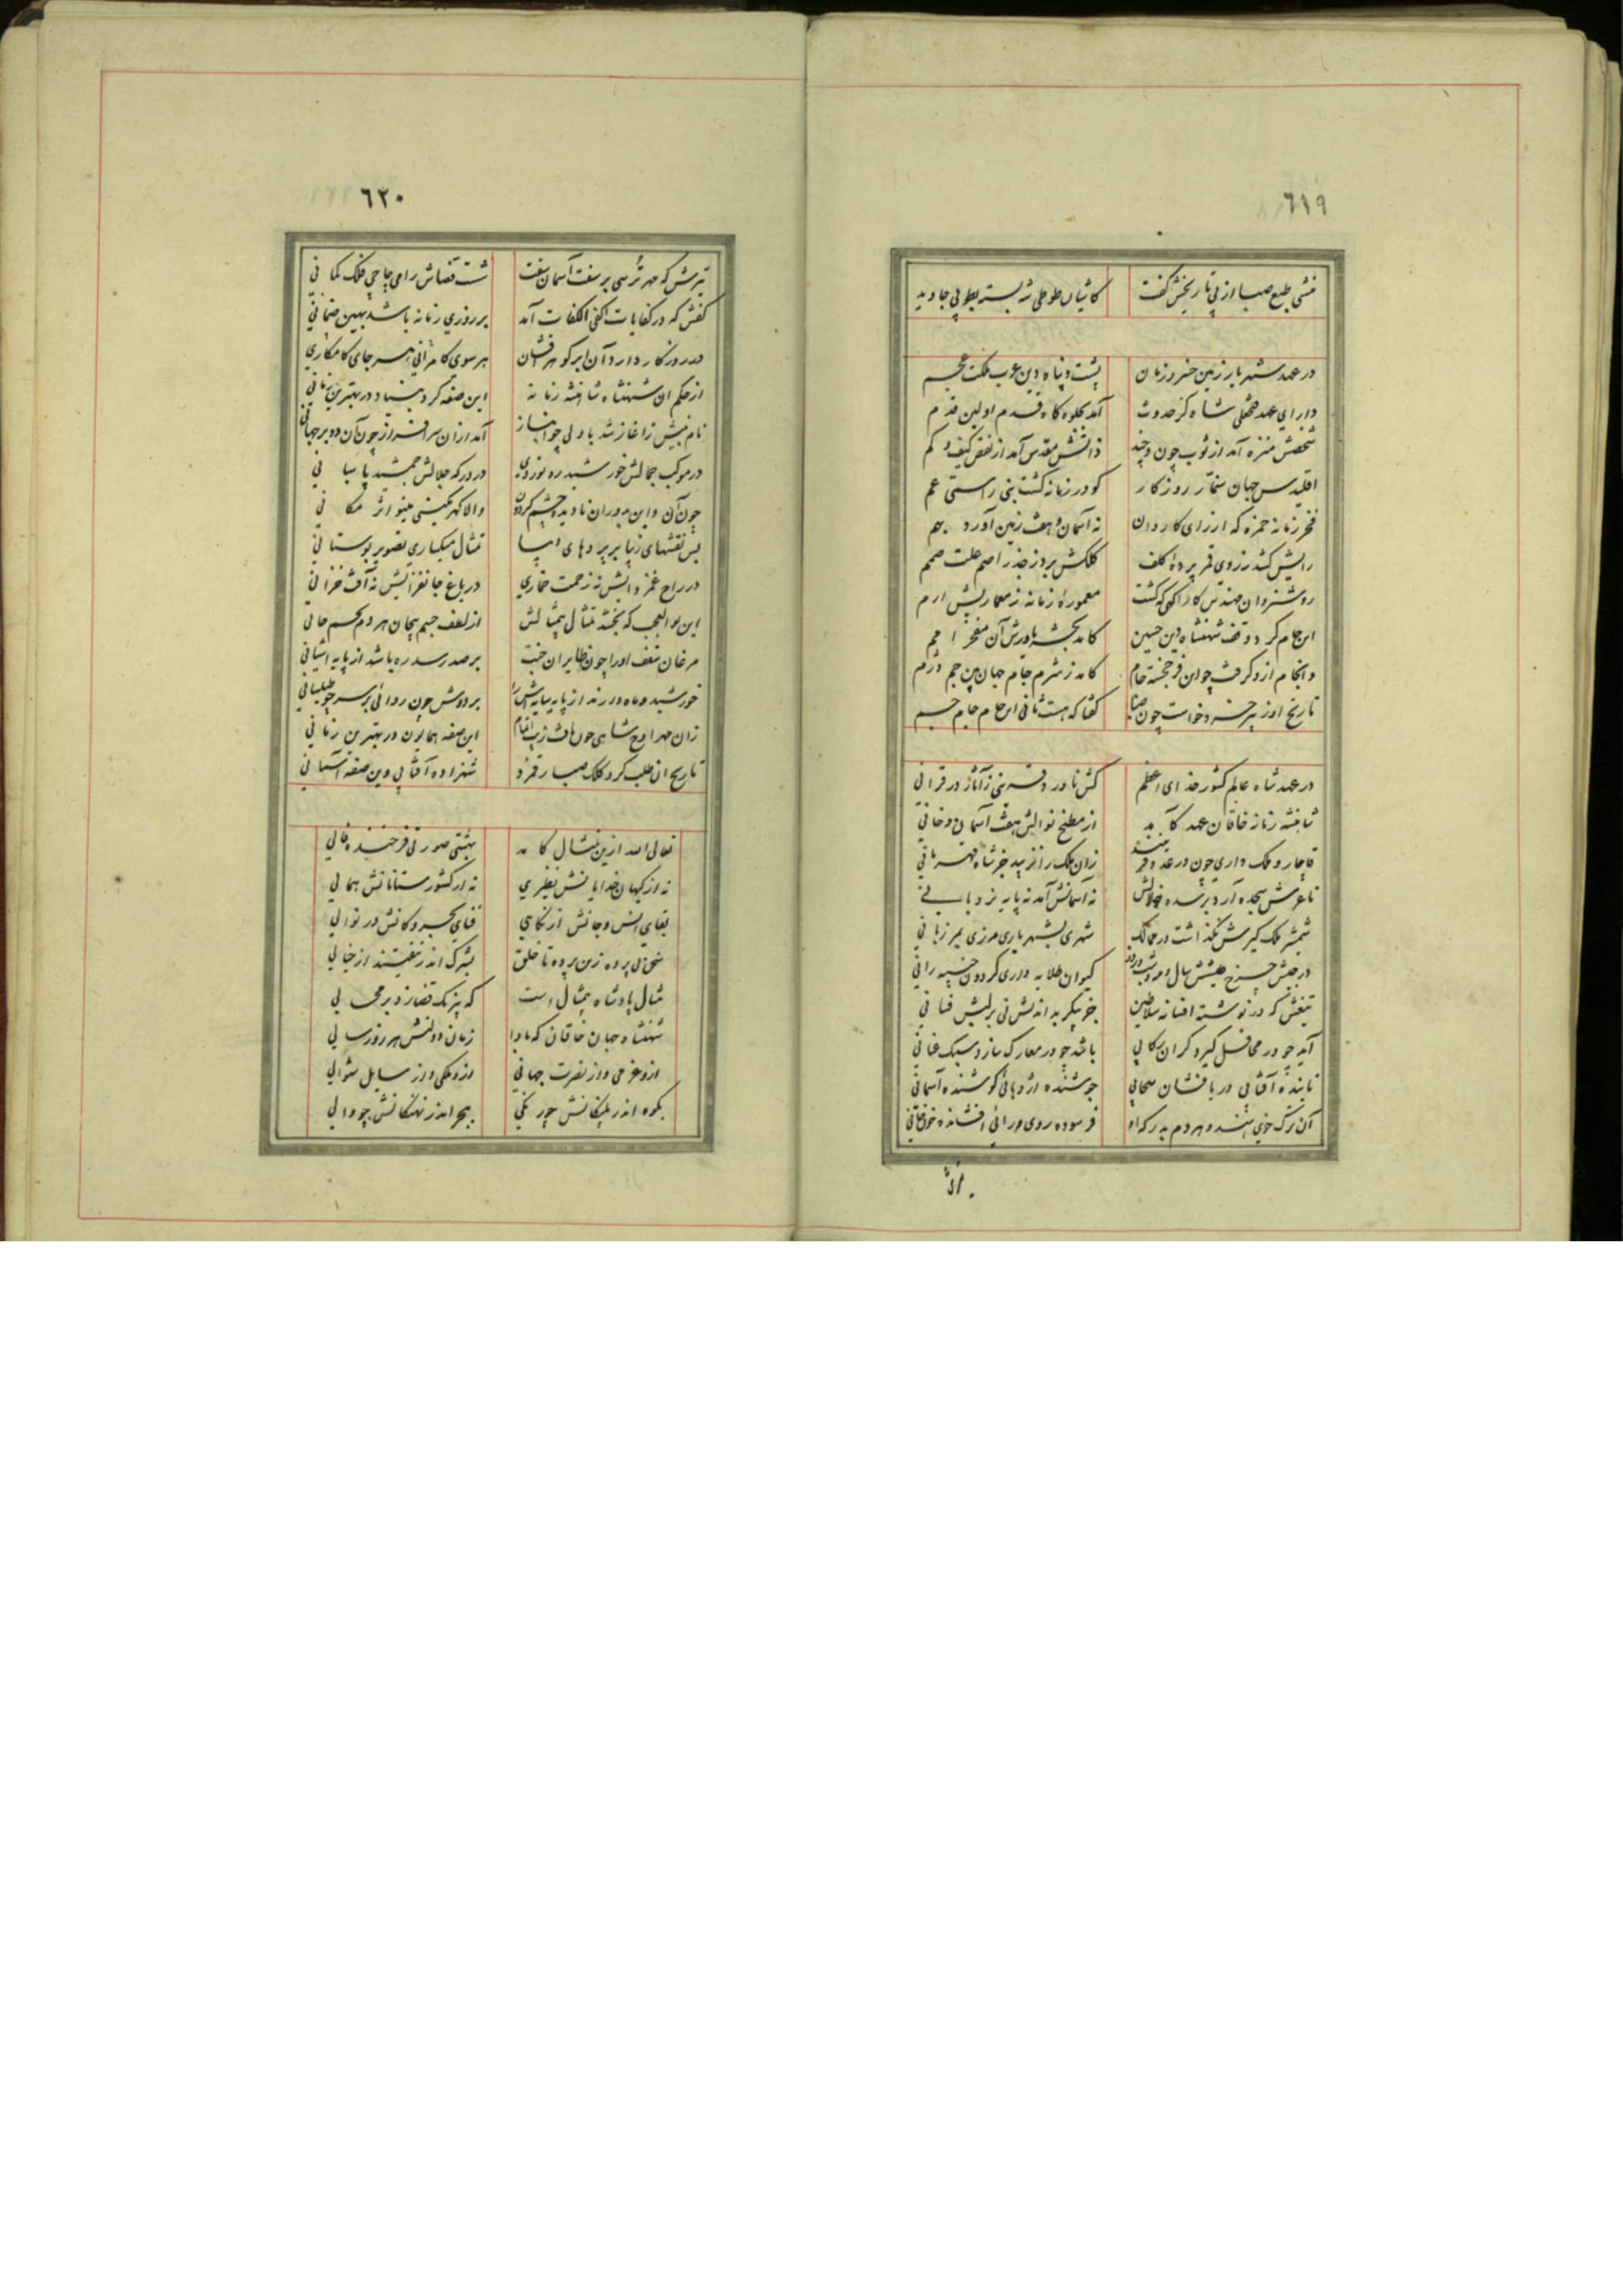 ٦١٩
منشی طبع صبا از پی تاریخش گفت کاشیان طوطی شه بسته بطوبی جاوید
در عهد شهریار زمین خسرو زمان پشت و پناه دین عرب ملکت عجم
دارای عهد فتحعلی شاه کز حدوث آمد بجلوه گاه قدم اولین قدم
شخصش منزه آمد از ثوب چون و چند ذاتش مقدس آمد از نقص کیف و کم
اقلیدس جهان سنمار روزگار کو در زمانه گشت بنی راستی علم
فخر زمانه حمزه که از رای کاردان نه آسمان و هفت زمین آورد بهم
رایش کشد ز روی قمر پرده کلف کلکش برد ز جذر اصم علت صمم
روشنروان مهندس کار آگهی که گشت معموره زمانه ز معماریش ارم
این جام کرد وقف شهنشاه دین حسین کامد بحشر یاورش آن مفخر امم
و انجام ازو گرفت چو این فرخجسته جام کامد ز شرم جام جهان بین جم دژم
تاریخ او ز پیر خرد خواست چون صبا گفتا که هست ثانی این جام جام جم
در عهد شاه عالم کشور خدای اعظم کش نادر و قرینی ز آغاز در قرانی
شاهنشه زمانه خاقان عهد کامد از مطبخ نوالش هفت آسمان دخانی
قاجار و ملک داری چون در عدو قهر بینند زان ملک را نزیبد جز شاه قهرمانی
تا عرش سجده آرد بر سده جلالش نه آسمانش آمد نه پایه نردبانی
شمشیر ملک گیرش نگذاشت در ممالک شهری بشهریاری مرزی بمرزبانی
در جیش چرخ طیشش سال و مه و شب و روز کیوان طلایه داری گردون خسپه رانی
تیغش که در نوشته افسانه سلاطین جز پیکر بداندیش نی بر لبش فسانی
آید چو در محافل گیرد گران رکابی باشد چو در معارک سازد سبک عنانی
تابنده آفتابی در بافشان سحابی جوشنده اژدهائی کوشنده آسمانی
آن ترک خوی هند و هر دم بدرگه او فرسوده روی و رائی افشانده خان خانی
٦٢٠
تیرش که مهر ترسی بر سفت آسمان سفت شست قضاش رامی چاچی فلک کمانی
کفش که در کفایات اکفی الکفات آمد بر روزی زمانه باشد بهین ضمانی
در روزگار دارد آن ابر گوهر افشان هر سوی کامرانی هر جای کامکاری
از حکم آن شهنشاه شاهنشه زمانه این صفه کرد بنیاد در بهترین زمانی
در موکب جمالش خورشید ره نوردی در درگه جلالش جمشید پاسبانی
چون آن و این بدوران نادیده چشم گردون والا گهر مکینی مینو اثر مکانی
بس نقشهای زیبا بر پردهای دیبا تمثال میگساری تصویر بوستانی
در راح غمزدایش نه زحمت خماری در باغ جانفزایش نه آفت خزانی
این بوالعجب که بخشد تمثال بیمثالش از لطف جسم بیجان هر دم بجسم جانی
مرغان سقف او را چون طایران جنت بر صدر سدره باشد از پایه آشیانی
بر دوش چون ردائی بر سر چو طیلسانی
زان مهر اوج شاهی چون یافت زیب اتمام این صفه همایون در بهترین زمانی
تاریخ آن طلب کرد کلک صبا رقم زد شهزاده آفتابی وین صفه آسمانی
تعالی الله ازین تمثال کامد بهشتی صورتی فرخنده فالی
نه از کیهان خدایانش نظیری نه از کشورستانانش همالی
بقای انس و جانش از نگاهی فنای بحر و کانش در نوالی
سخن بی پرده زین پرده تا خلق بشرک اندر نیفتند از خیالی
مثال پادشاه بیمثال است که نیرنگ قضا زد بر محالی
شهنشاه جهان خاقان که بادا زمان دولتش هر روز سالی
ازو عزمی و از نصرت جهانی ازو ملکی و از سایل سئوالی
بکوه اندر پلنگانش چو رنگی ببحر اندر نهنگانش چو والی